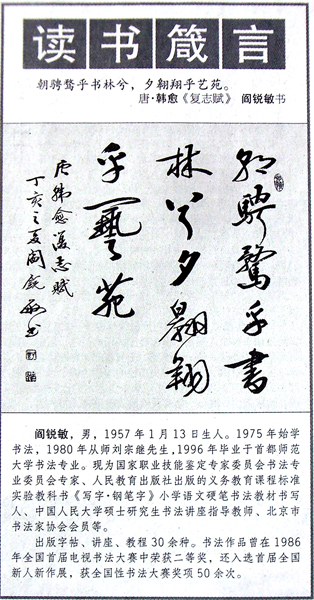 读书箴言
朝骋骛乎书林兮，夕翱翔乎艺苑。
唐·韩愈《复志赋》 阎锐敏书
朝骋骛乎書
林兮夕翱翔
乎藝苑
唐韩愈復志赋
丁亥之夏阎锐敏书
阎锐敏，男，1957年1月13日生人。1975年始学
书法，1980年从师刘宗继先生,1996年毕业于首都师范
大学书法专业。现为国家职业技能鉴定专家委员会书法专
业委员会专家、人民教育出版社出版的义务教育课程标准
实验教科书《写字·钢笔字》小学语文硬笔书法教材书写
人、中国人民大学硕士研究生书法讲座指导教师、北京市
书法家协会会员等。
出版字帖、讲座、教程30余种。书法作品曾在1986
年全国首届电视书法大赛中荣获二等奖，还入选首届全国
新人新作展，获全国性书法大赛奖项50余次。